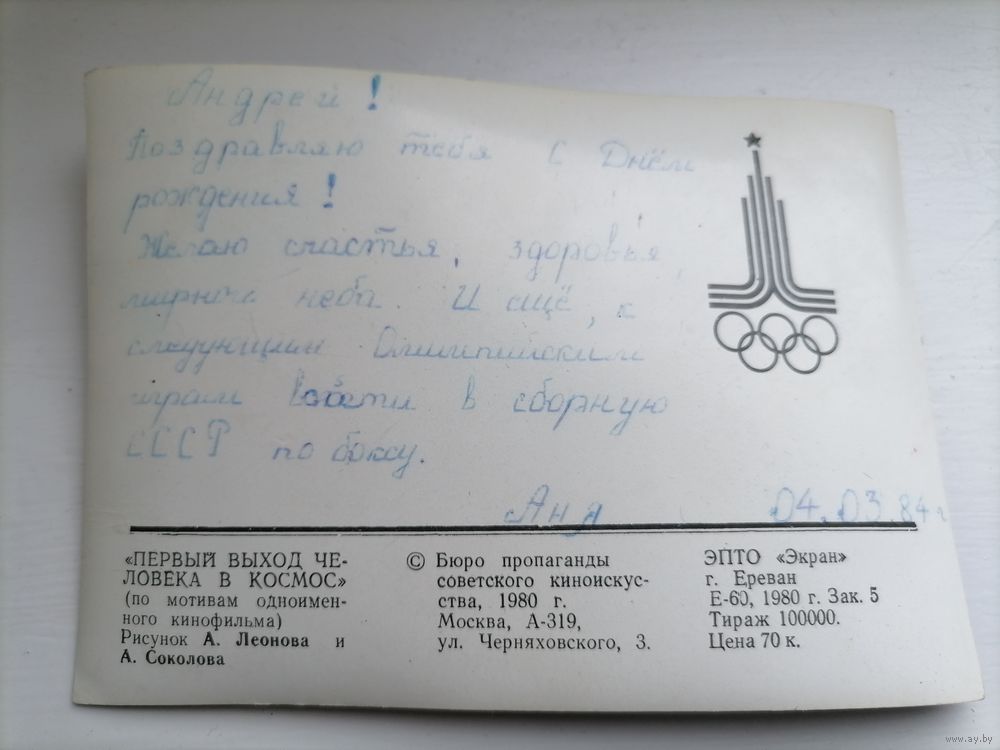 Андрей!
Поздравляю тебя с Днём
рождения!
Желаю счастья, здоровья,
мирного неба. И ещё, к
следующим Олимпийским
играм войти в сборную
СССР по боксу.
04.03.84 г
«ПЕРВЫЙ ВЫХОД ЧЕ-
ЛОВЕКА В КОСМОС»
(по мотивам одноимен-
ного кинофильма)
Рисунок А. Леонова и
А. Соколова
© Бюро пропаганды
советского киноискус-
ства, 1980 г.
Москва, А-319,
ул. Черняховского, 3.
ЭПТО «Экран»
г. Ереван
Е-60, 1980 г. Зак. 5
Тираж 100000.
Цена 70 к.
www.ay.by